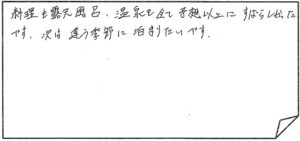 料理も露天風呂、温泉も全て予想以上にすばらしかった
です。次は違う季節に泊まりたいです。